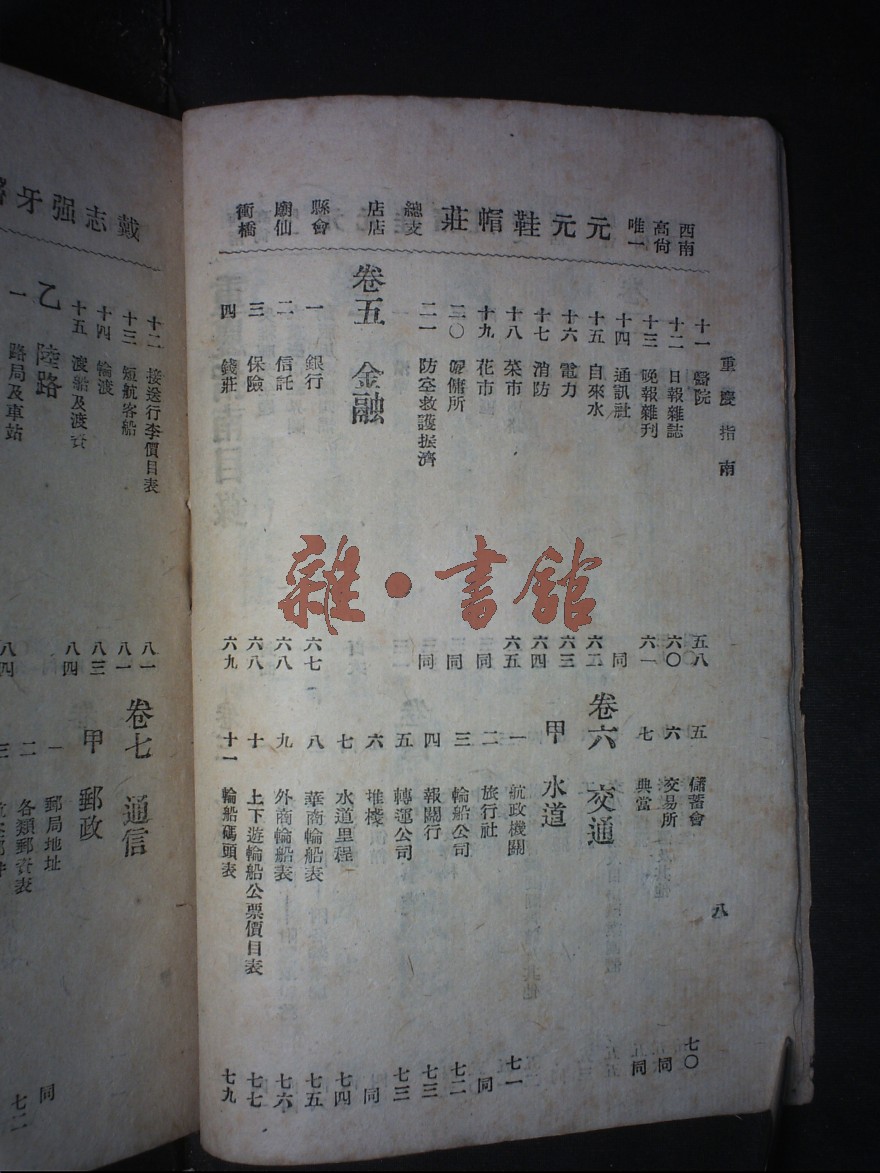 西南高尚唯一 元元鞋帽莊 總店縣廟街 支店會仙橋
重慶指南
八
十一 醫院 五八
十二 日報雜誌 六〇
十三 晚報雜刊 六一
十四 通訊社 同
十五 自來水 六二
十六 電力 六三
十七 消防 六四
十八 菜市 六五
十九 花市 同
二〇 雇傭所 同
二一 防空救護振濟 同
卷五 金融
一 銀行 六七
二 信託 六八
三 保險 六八
四 錢莊 六九
五 儲蓄會 七〇
六 交易所 同
七 典當 同
卷六 交通
甲 水道
一 航政機關 七一
二 旅行社 同
三 輪船公司 七二
四 報關行 七三
五 轉運公司 七三
六 堆棧 同
七 水道里程 七四
八 華商輪船表 七五
九 外商輪船表 七六
十 上下遊輪船公票價目表 七七
十一 輪船碼頭表 七九
雜·書館
戴志强牙
十二 接送行李價目表 八一
十三 短航客船 八一
十四 輪渡 八三
十五 渡船及渡資 八四
乙 陸路
一 路局及車站 八四
卷七 通信
甲 郵政
一 郵局地址 同
二 各類郵資表 七二
三